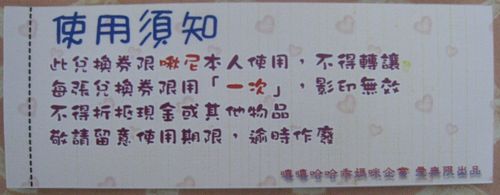 使用須知
此兌換券限啾尼本人使用，不得轉讓
每張兌換券限用「一次」，影印無效
不得折抵現金或其他物品
敬請留意使用期限，逾時作廢
嘻嘻哈哈市媽咪企業 愛無限出品